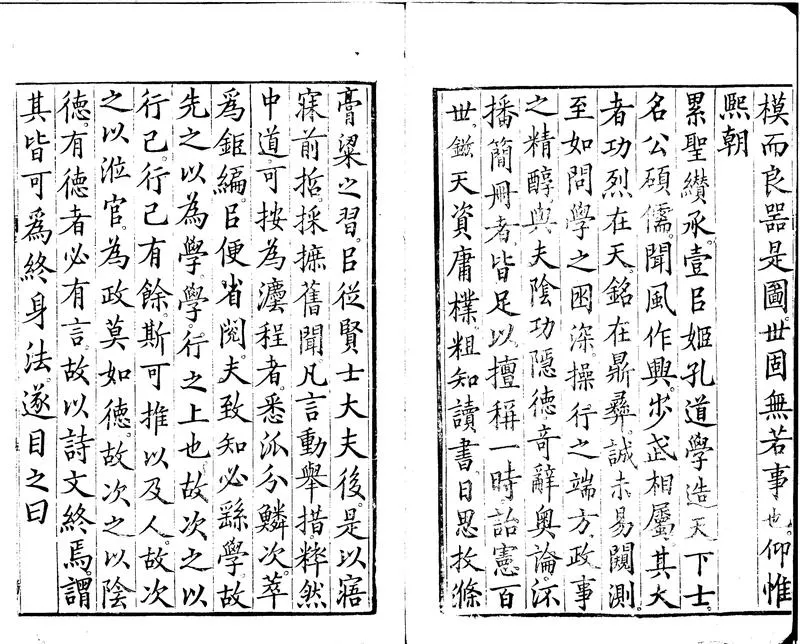 模而良器是圖世固無若事也仰惟
熙朝
累聖纘承壹㠯姬孔道學造天下士
名公碩儒聞風作興步武相屬其大
者功烈在天銘在鼎彝誠未易闚測
至如問學之困深操行之端方政事
之精醇與夫陰功隱德奇辭奧論沶
播簡冊者皆足以擅稱一時詒憲百
世鎡天資庸檏粗知讀書日思扷滌
膏粱之習㠯從賢士大夫後是以寤
寐前哲採摭舊聞凡言動舉措粹然
中道可按為灋程者悉泒分鱗次萃
為鉅編㠯便省閱夫致知必繇學故
先之以為學學行之上也故次之以
行己行己有餘斯可推以及人故次
之以涖官為政莫如德故次之以陰
德有德者必有言故以詩文終焉謂
其皆可為終身法遂目之曰